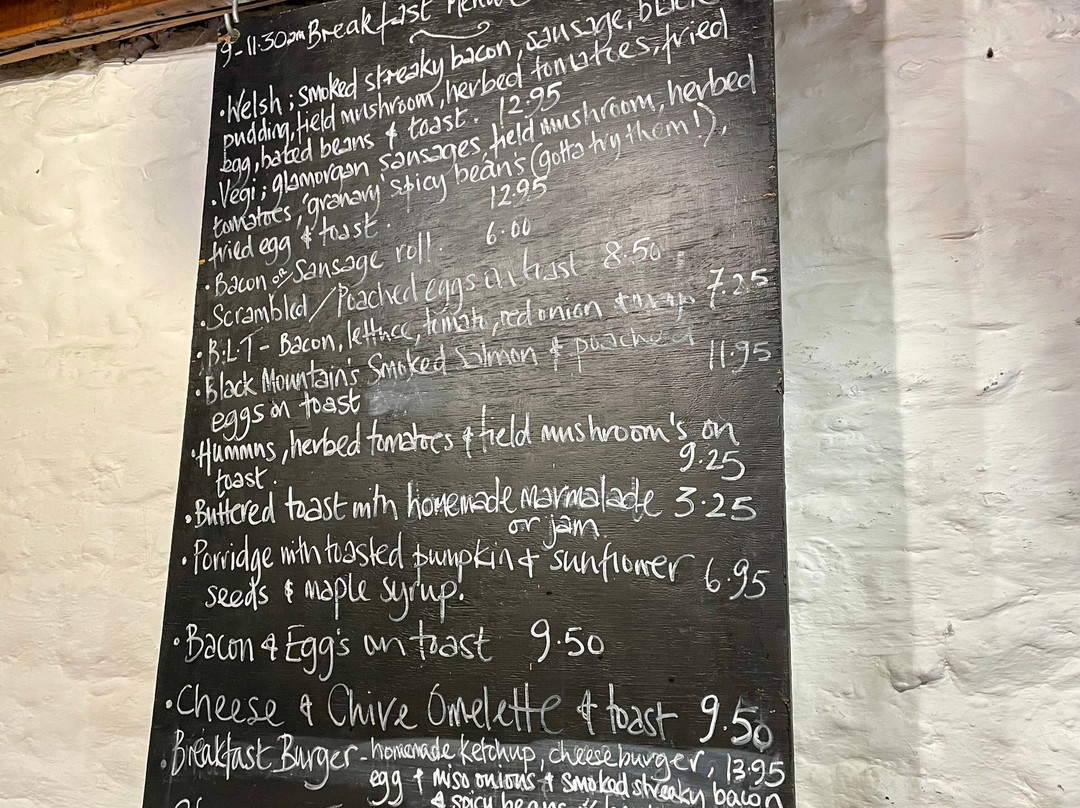 9-11:30am Breakfast Menu
• Welsh; smoked streaky bacon, sausage, black
pudding, field mushroom, herbed tomatoes, fried
egg, baked beans & toast. 12.95
• Vegi; glamorgan sausages, field mushroom, herbed
tomatoes, 'granary' spicy beans (gotta try them!),
fried egg & toast. 12.95
• Bacon or Sausage roll. 6.00
• Scrambled / Poached eggs on toast 8.50
• B.L.T - Bacon, lettuce, tomato, red onion 7.25
• Black Mountain's Smoked Salmon & poached 11.95
eggs on toast
• Hummus, herbed tomatoes & field mushroom's on
toast. 9.25
• Buttered toast with homemade marmalade 3.25
or jam.
• Porridge with toasted pumpkin & sunflower
seeds & maple syrup. 6.95
• Bacon & Egg's on toast 9.50
• Cheese & Chive Omelette & toast 9.50
• Breakfast Burger - homemade ketchup, cheeseburger, 13.95
egg & miso onions & smoked streaky bacon
& spicy beans